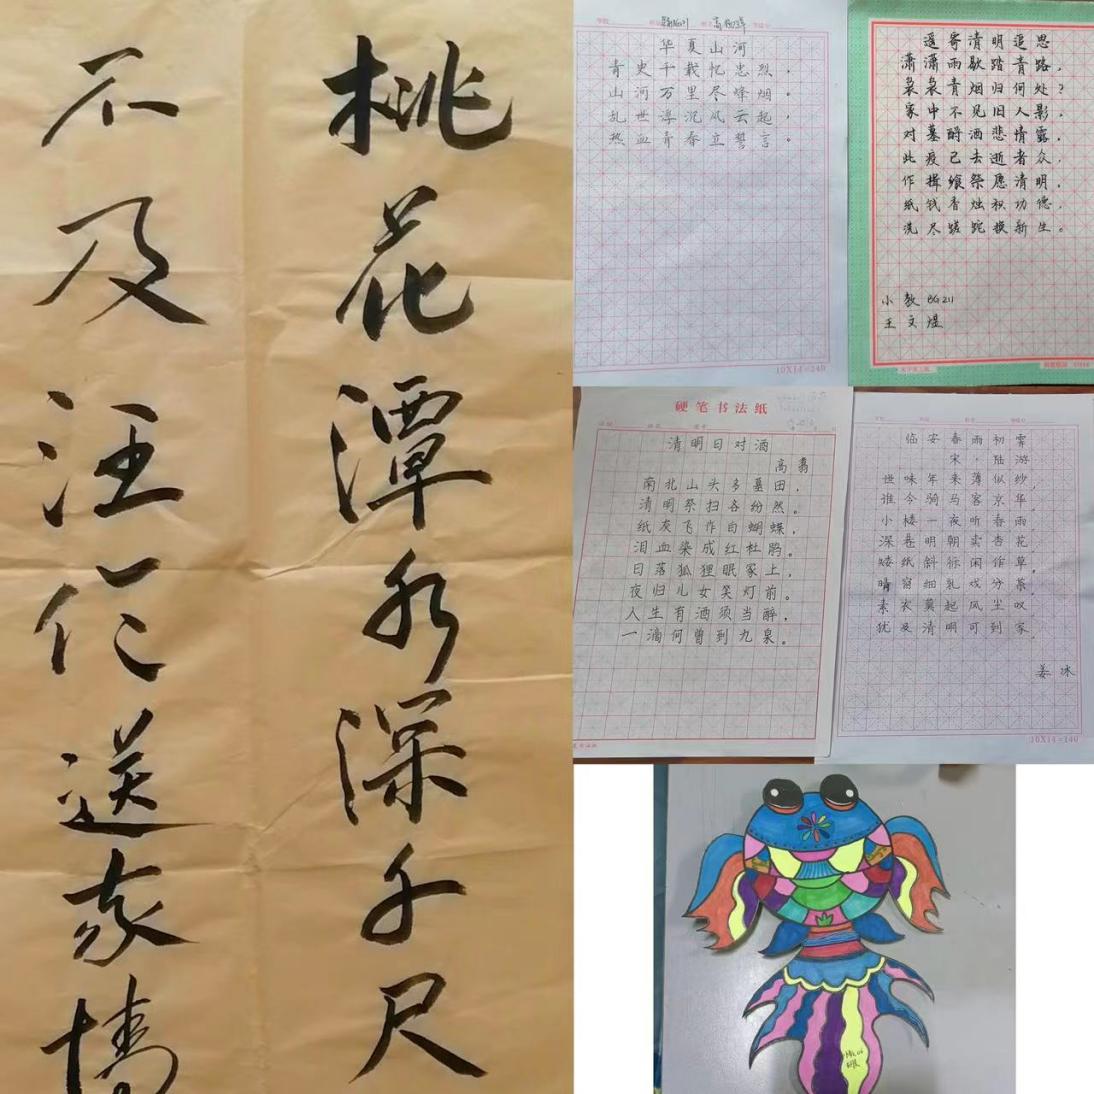 桃花潭水深千尺
不及汪伦送我情
华夏山河
青史千载忆忠烈，
山河万里尽烽烟。
乱世浮沉风云起，
热血青春立誓言。
10X14=140
遥寄清明追思
潇潇雨歇踏青路，
袅袅青烟归何处？
家中不见旧人影，
对墓酹酒悲情露。
此疫已去逝者众，
作揖 祭愿清明，
纸钱香烛积功德，
洗尽蹉跎换新生。
小教 BG211
王文煜
硬笔书法纸
清明日对酒
高翥
南北山头多墓田，
清明祭扫各纷然。
纸灰飞作白蝴蝶，
泪血染成红杜鹃。
日落狐狸眠冢上，
夜归儿女笑灯前。
人生有酒须当醉，
一滴何曾到九泉。
临安春雨初霁
宋·陆游
世味年来薄似纱，
谁令骑马客京华。
小楼一夜听春雨
深巷明朝卖杏花
矮纸斜行闲作草，
晴窗细乳戏分茶。
素衣莫起风尘叹
犹及清明可到家。
姜冰
10X14=140